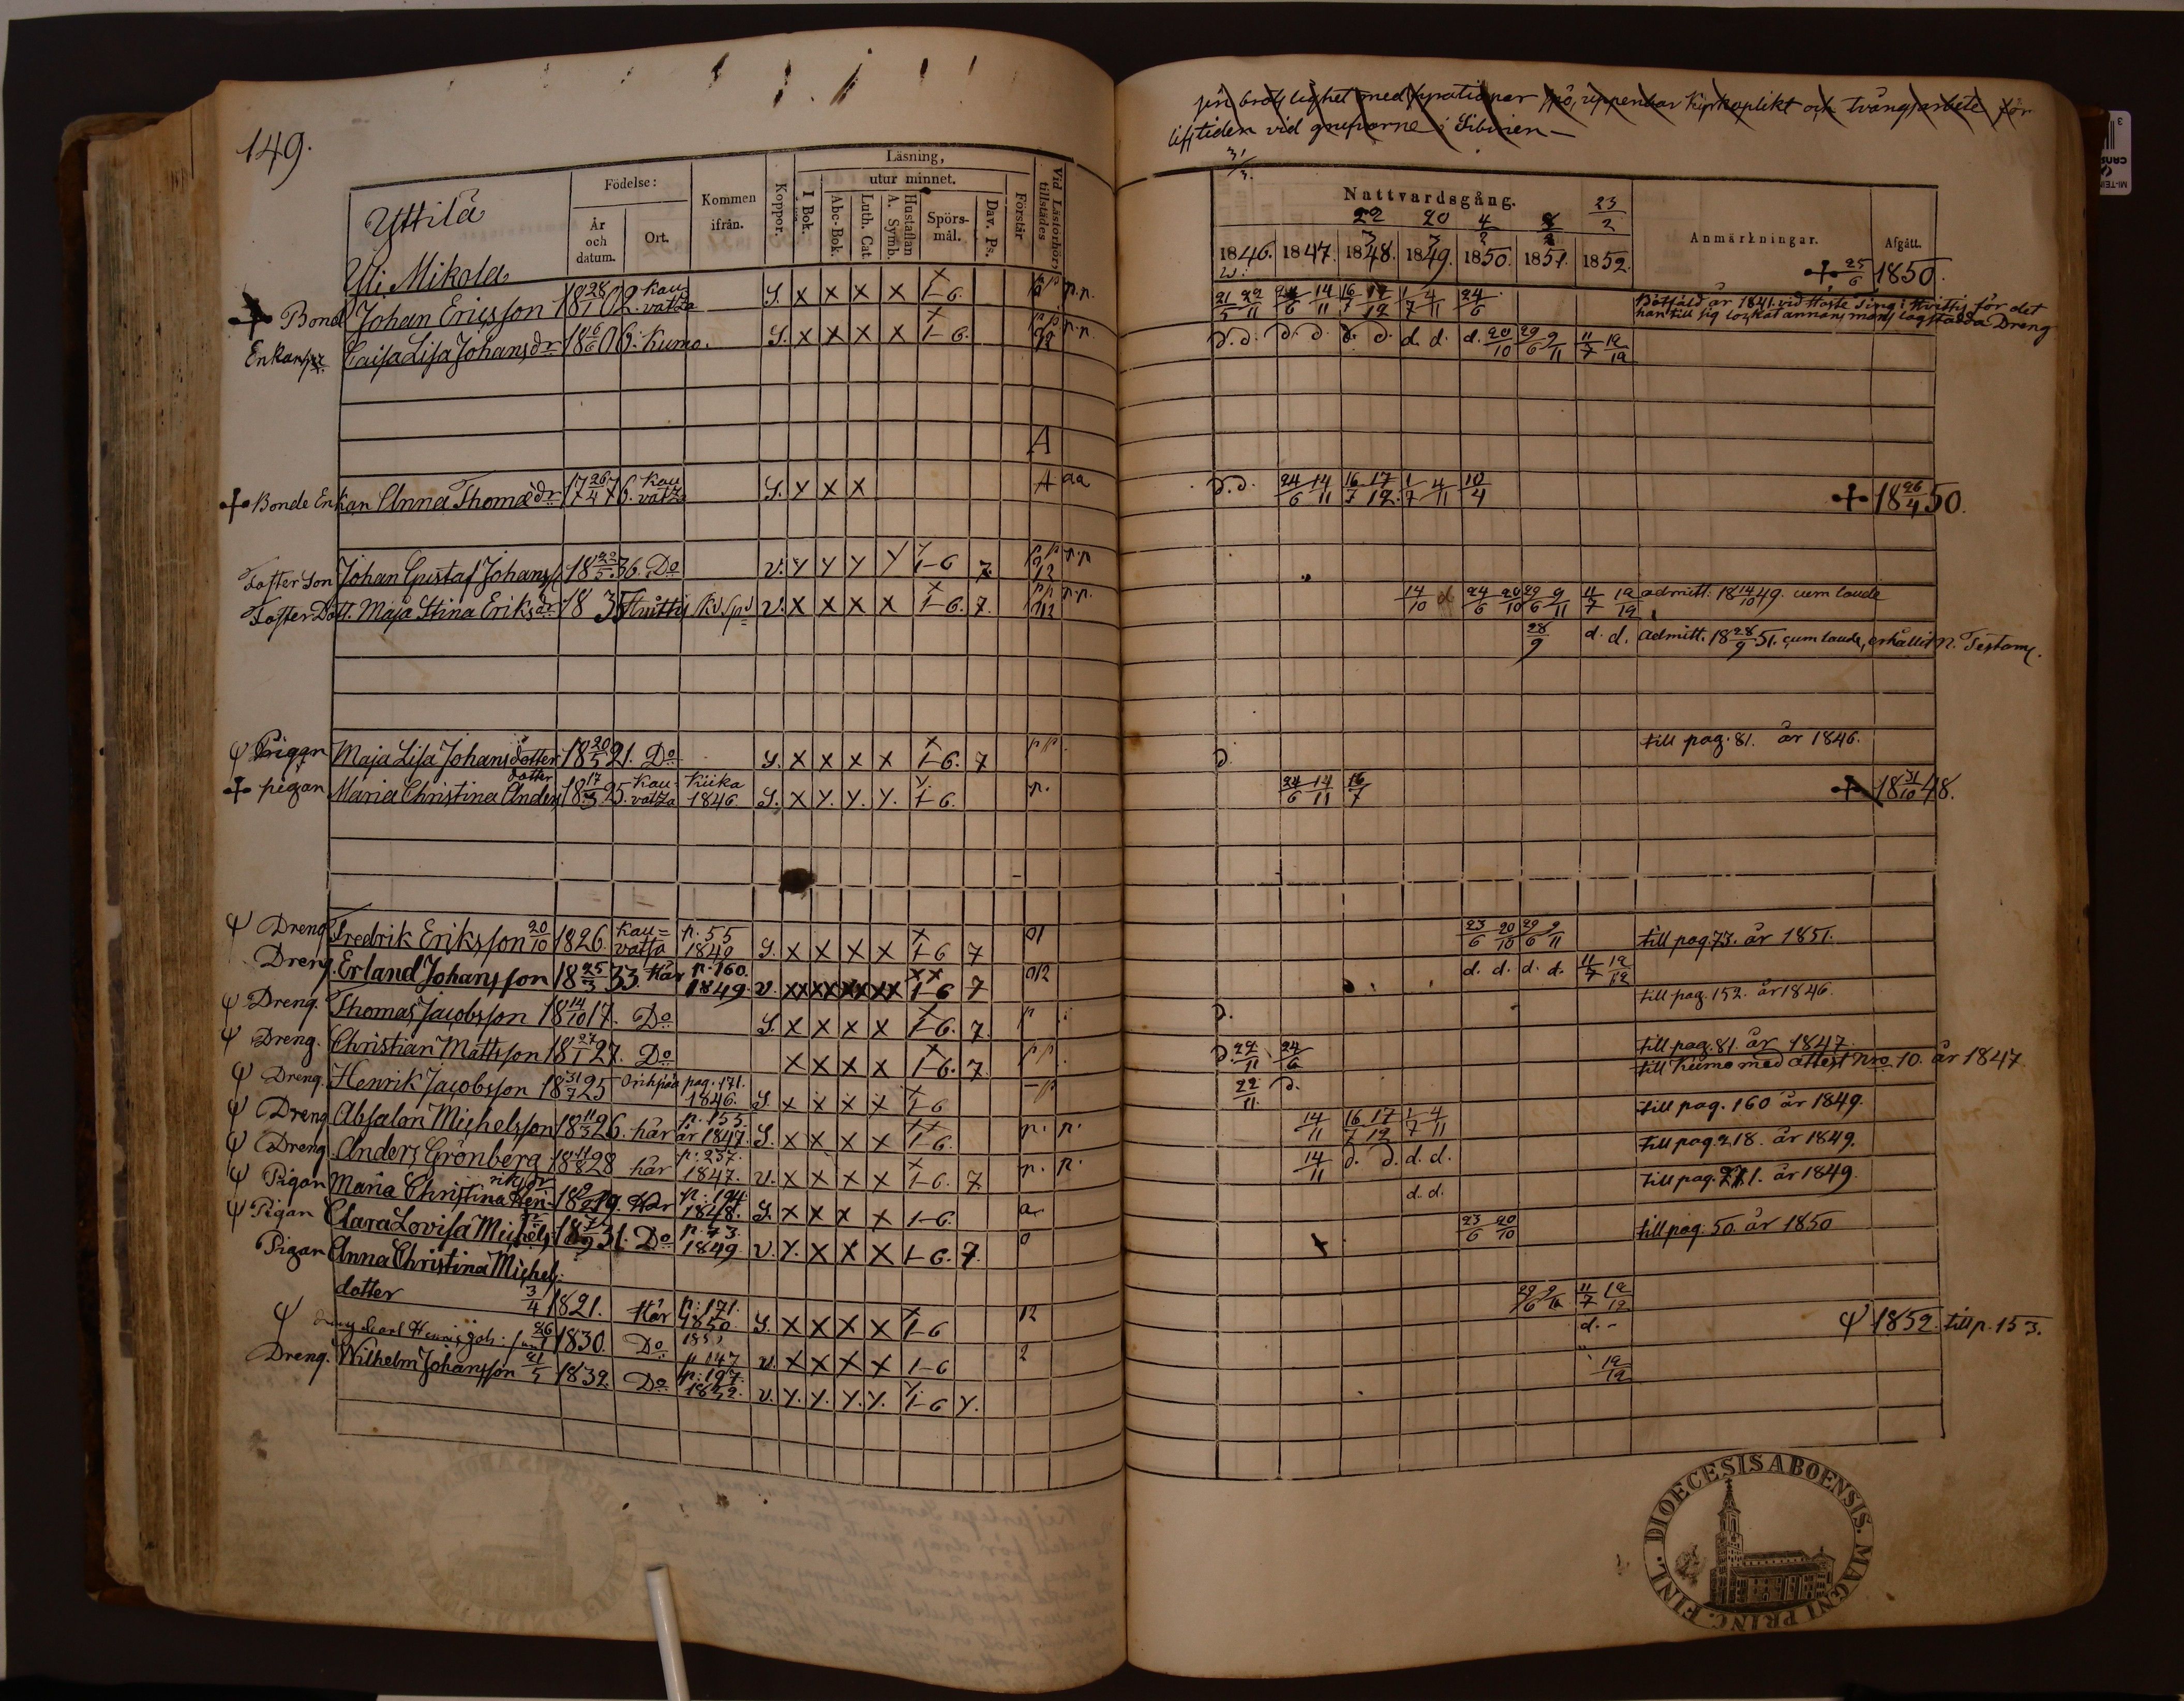 149.
Läsning,
utur minnet.
Födelse:
År och datum.
Ort.
Kommen ifrån.
Koppor.
I Bok.
Abc-Bok.
Luth. Cat.
Hustaflan A. Symb.
Spörs-mål.
Dav. Ps.
Förstår
Vid Läsförhör tillstädes
Yttilä
Yli Mikola
Bond Johan Ericsson 18 28/1 02. Kau vatza S. x x x x 1-6. p.p.
Enkan Caisa Lisa Johansdr 18 6/6 06. Kumo. S. x x x x 1-6. p.p.
A
Bonde Enkan Anna Thomædr 17 26/4 76. Kau vatza S. y x x A aa
Foster Son Johan Gustaf Johanss 18 22/5 36. Do v. y y y y 1-6 7. p.p
Foster Dott. Maja Stina Eriksdr 18 35 Hvittis v. x x x x 1-6. 7. p.p.
Pigan Maja Lisa Johansdotter 18 20/5 21. Do S. x x x x 1-6. 7 pp.
pigan Maria Christina Anders dotter 18 17/3 25. Kau-vatza Kiika 1846 S. x y. y. y. 1-6. p.
Dreng Fredrik Eriksson 20/10 1826. Kau=vatsa p. 55 1849 S. x x x x 1-6 7
Dreng. Erland Johansson 18 25/3 33 Här p. 160. 1849. v. xx xx xx xx 1-6 7
Dreng. Thomas Jacobsson 18 14/10 17. Do S. x x x x 1-6. 7. p
Dreng. Christian Mattsson 18 27/1 27. Do x x x x 1-6. 7. pp.
Dreng. Henrik Jacobsson 18 31/7 25 pag. 171. 1846. S. x x x x 1-6 -p
Dreng Absalon Michelsson 18 11/3 26. här p. 155. år 1847. S. x x x x 1-6. p. p.
Dreng. Anders Grönberg 18 11/8 28 här p. 237. 1847. v. x x x x 1-6. 7. p. p.
Pigan Maria Christina Hen-riksdr 18 9/2 19. Här p. 194 1848. S. x x x x 1-6. a
Pigan Clara Lovisa Michels 31. Do p. 73. 1849 v. y. x x x 1-6. 7. 0
Pigan Anna Christina Michels-
dotter 3/4 1821. Här p. 171. 1850. S. x x x x 1-6 12
dreng Carl 26/1 1830. Do 1852 p 147 v. x x x x 1-6 2
Dreng. Wilhelm Johansson 21/5 1832 Do p. 197. 1852. v. y. y. y. y. 1-6 y.
uppenbar kyrkoplikt och tvångsarbete för
lifstiden vid grufvorne i Sibirien —
Nattvardsgång.
22/3 20/3 4/2 23/2
1846. 1847. 1848. 1849. 1850. 1851. 1852.
Anmärkningar.
Afgått.
21/5 22/11 24/6 14/11 16/7 17/12 1/7 4/11 24/6 25/6 1850.
Bötfäld år 1841. vid Höste Ting i Hvittis för det
han till sig lockat annans mans lagstadda Dreng
d. d. d. d. d. d. d. d. d. 20/10 29/6 9/11 11/7 12/12
d. d. 24/6 14/11 16/7 17/12. 1/7 4/11 10/4 18 26/4 50.
14/10 d 24/6 20/10 29/6 9/11 11/7 12/12 admitt. 18 14/10 49. cum laude
28/9 d. d. admitt. 18 28/9 51. cum laude, erhållit N. Testam.
d. till pag. 81. år 1846.
24/6 14/11 16/7 18 31/10 48.
23/6 20/10 29/6 9/11 till pag. 73. år 1851.
d. d. d. d. 11/7 12/12
d. till pag. 152. år 1846.
d. 22/11 24/6 till pag. 81. år 1847.
22/11. d. till Kumo med attest Nro 10. år 1847
14/11 16/7 17/12 1/7 4/11 till pag. 160 år 1849.
14/11 d. d. d. d. till pag. 218. år 1849.
d. d. till pag. 271. år 1849.
23/6 20/10 till pag. 50. år 1850
29/6 11/7 12/12
d. - 1852. till p. 153.
12/12
DIOECESIS ABOENSIS. MAGNI PRINC. FINL.